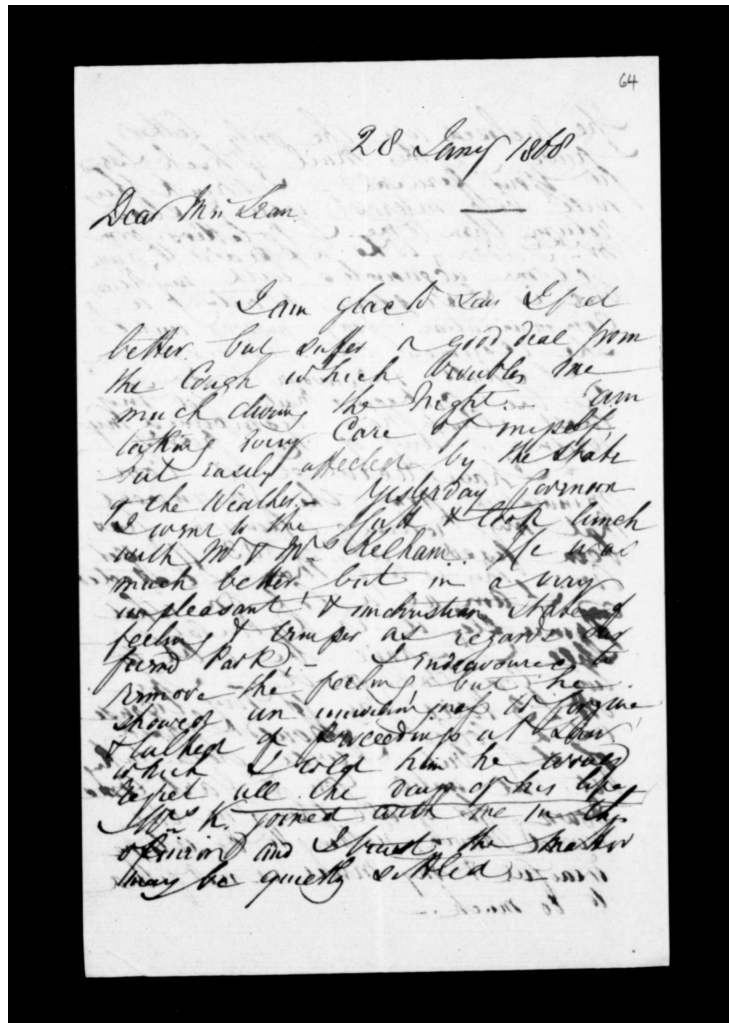 64
28 Jany 1868
Dear McLean.
I am glad to say I feel
better. but suffer a good deal from
the Cough which troubles me
much during the Night. I am
taking every Care of myself,
but easily affected by the State
of the Weather. Yesterday
I went to the & took lunch
with Mr & Mrs Kelham. He was
much better. but in a very
unpleasant & unchristian state of
feeling & temper as regards our
friend Park, – I endeavoured to
remove the feeling, but he
showed an unwillingness to forgive
& talked of proceedings at Law
which I told him he would
regret all the days of his life,
Mrs K. joined with me in this
opinion and I trust the matter
may be quietly settled